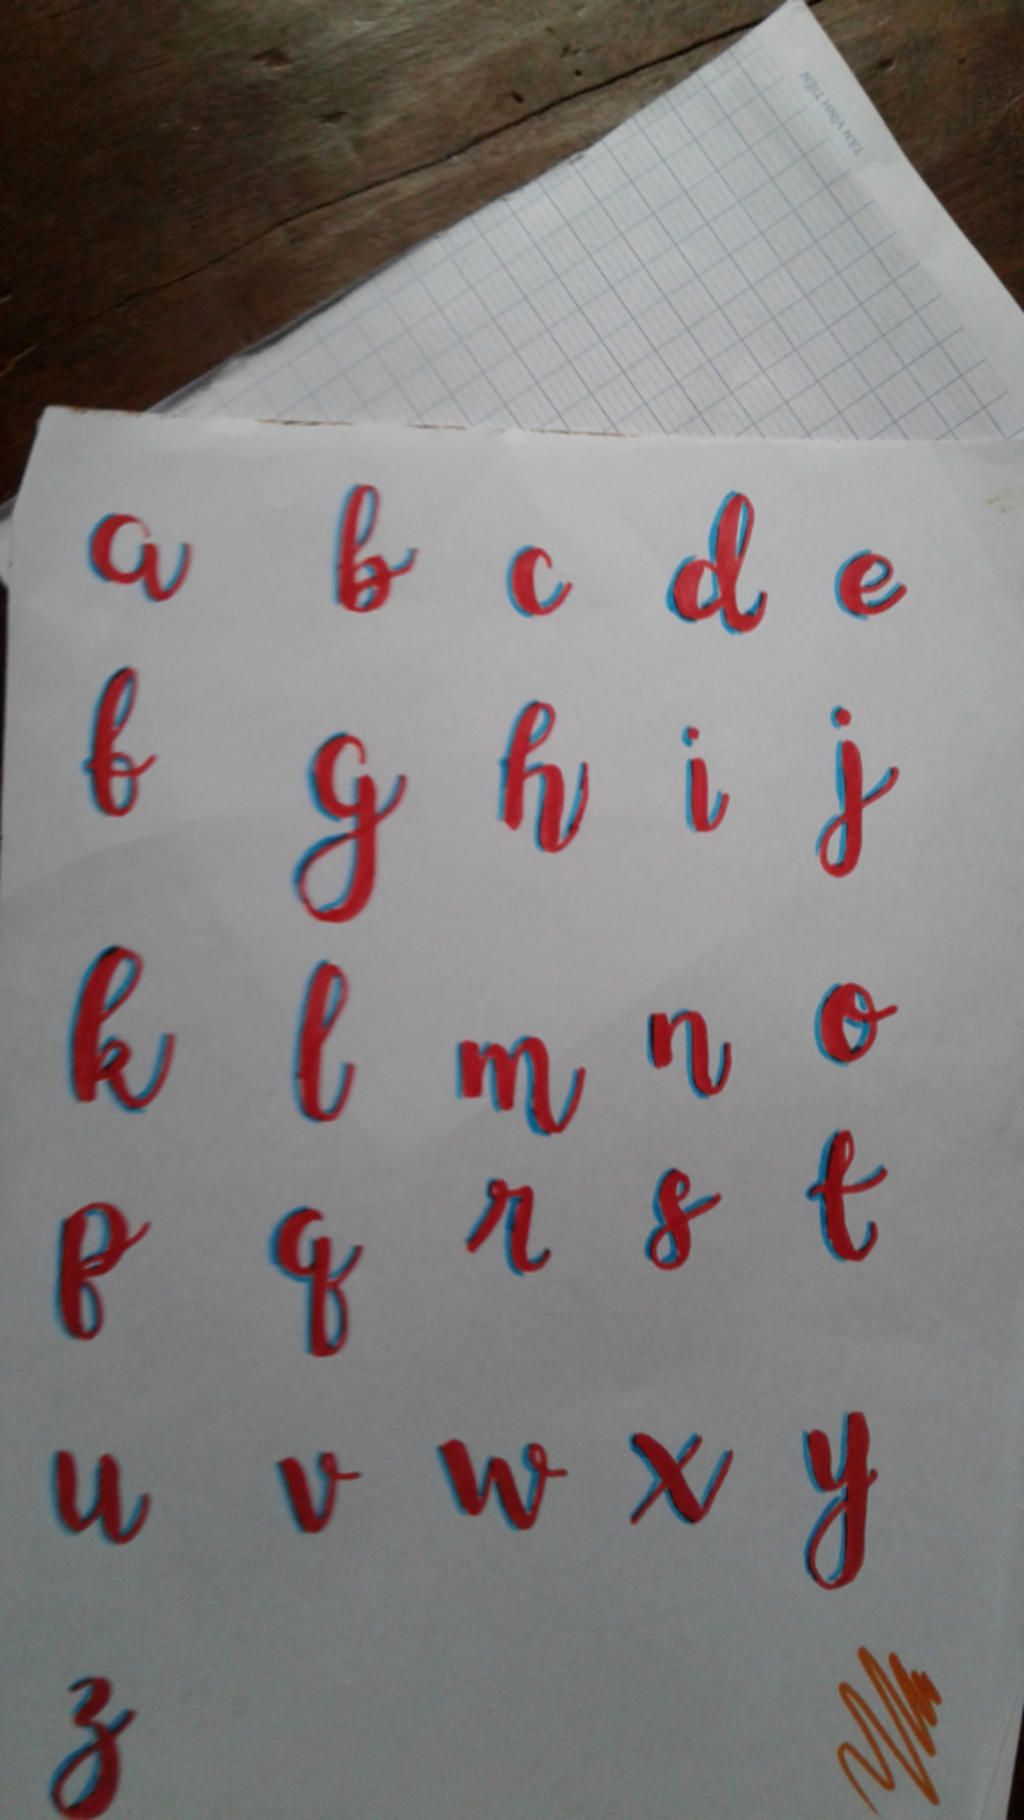 TÂN VĨNH TIẾN
a b c d e
f g h i j
k l m n o
p q r s t
u v w x y
z